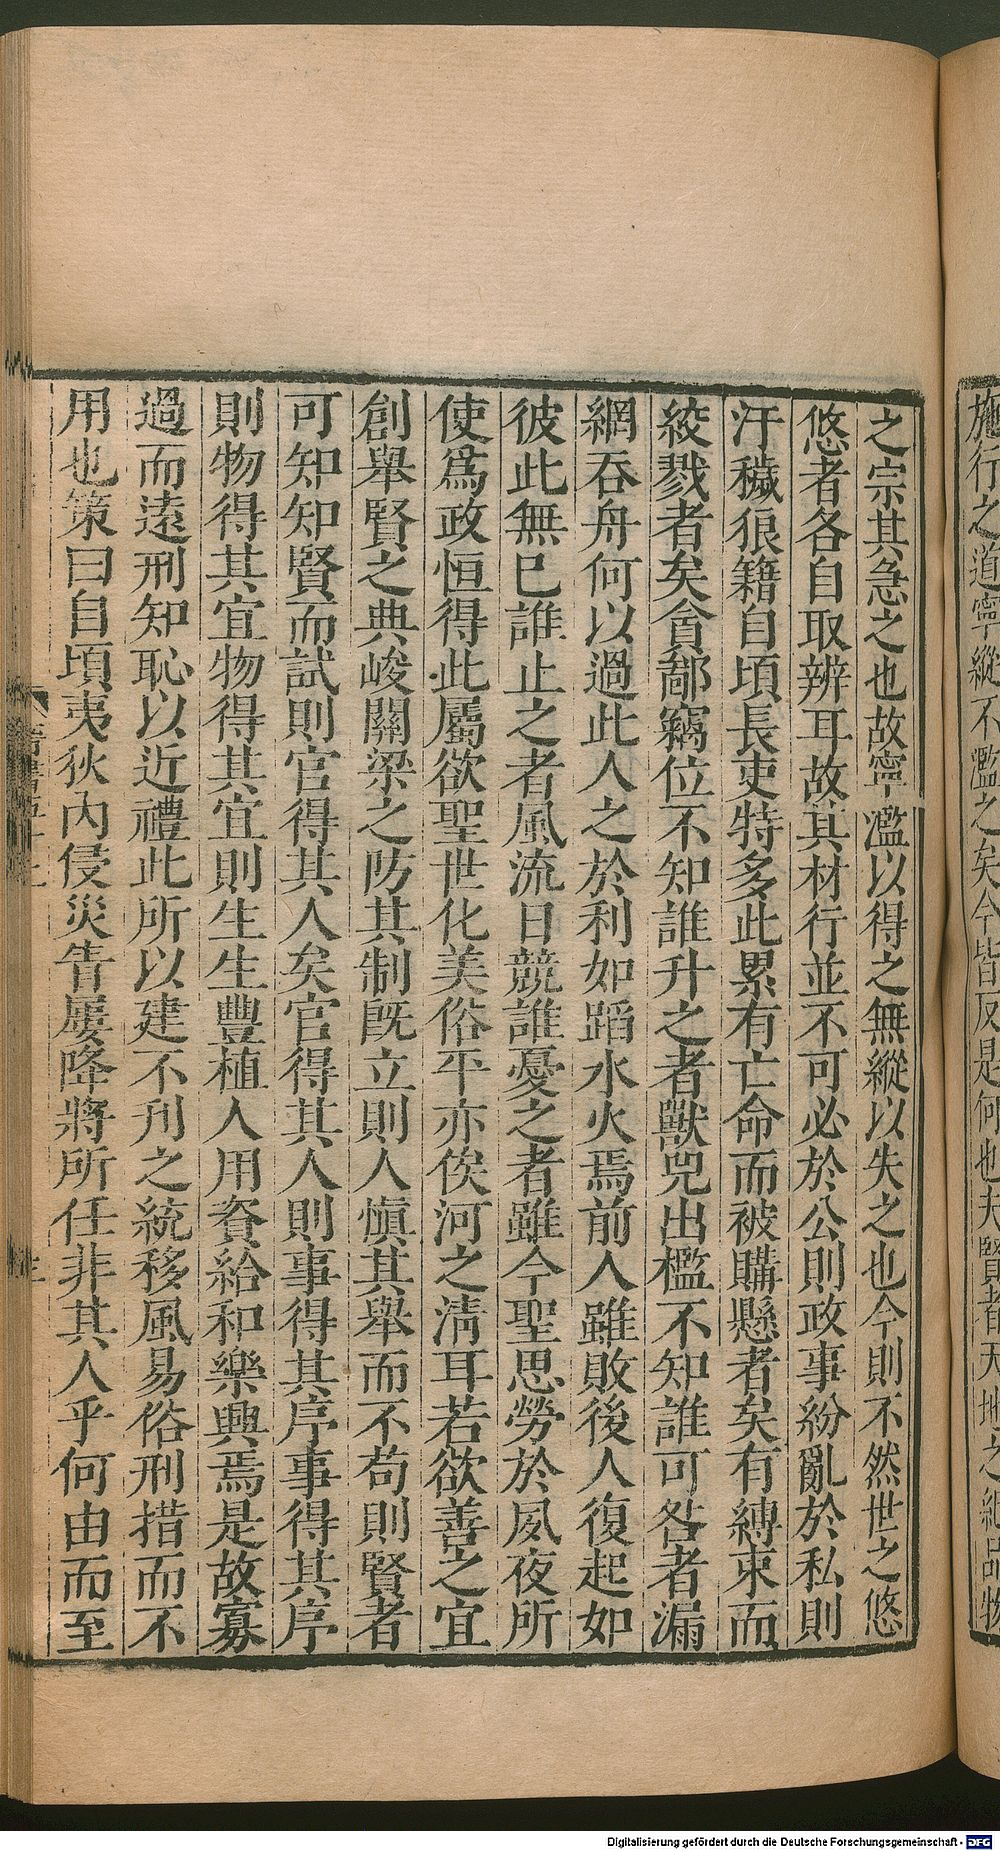 施行之道寧縱不濫之矣今皆反是何也夫賢者天地之紀品物
之宗其急之也故寧濫以得之無縱以失之也今則不然世之悠
悠者各自取辨耳故其材行並不可必於公則政事紛亂於私則
汙穢狼籍自頃長吏特多此累有亡命而被購懸者矣有縛束而
絞戮者矣貪鄙竊位不知誰升之者獸兕出檻不知誰可咎者漏
網吞舟何以過此人之於利如蹈水火焉前人雖敗後人復起如
彼此無已誰止之者風流日競誰憂之者雖今聖思勞於夙夜所
使爲政恒得此屬欲聖世化美俗平亦俟河之清耳若欲善之宜
創舉賢之典峻關梁之防其制旣立則人慎其舉而不苟則賢者
可知知賢而試則官得其人矣官得其人則事得其序事得其序
則物得其宜物得其宜則生生豐植人用資給和樂興焉是故寡
過而遠刑知恥以近禮此所以建不刊之統移風易俗刑措而不
用也策曰自頃夷狄內侵災眚屢降將所任非其人乎何由而至
Digitalisierung gefördert durch die Deutsche Forschungsgemeinschaft - DFG